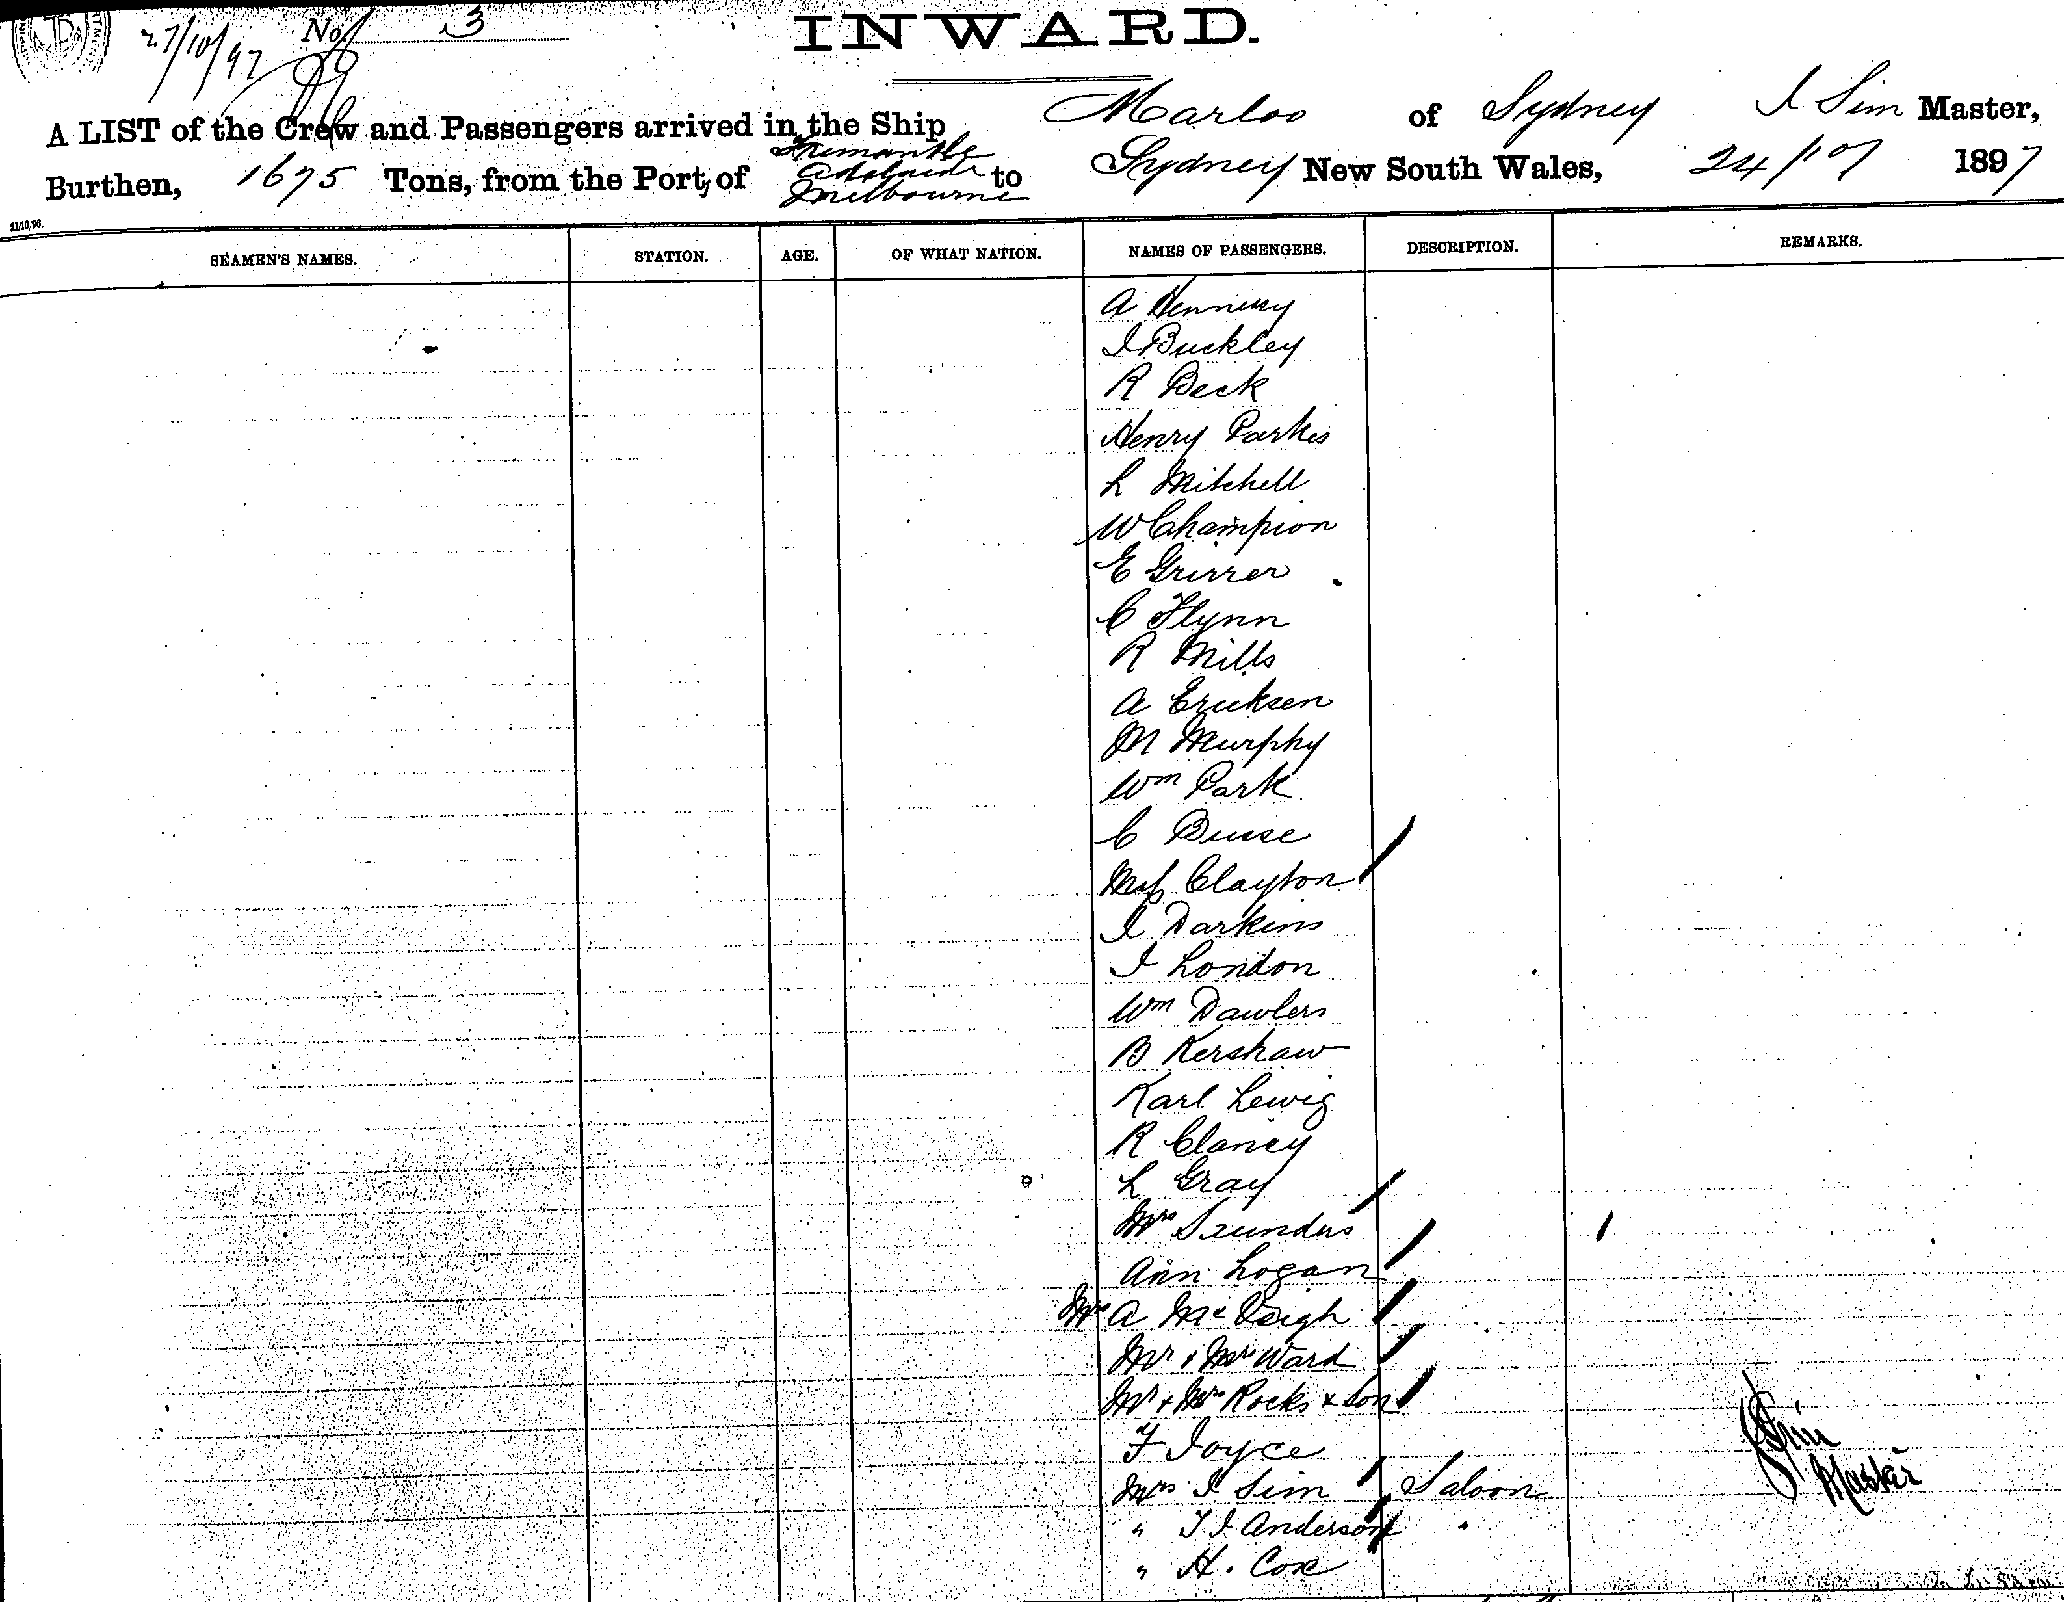 27/10/97 No. 3
INWARD.
A LIST of the Crew and Passengers arrived in the Ship Marloo of Sydney J Sim Master,
Fremantle
Adelaide
Burthen, 1675 Tons, from the Port, of Melbourne to Sydney New South Wales, 24/10/ 1897
21.10.96.
SEAMEN'S NAMES. STATION. AGE. OF WHAT NATION. NAMES OF PASSENGERS. DESCRIPTION. REMARKS.
A Hennessy
J Buckley
R Beck
Henry Parkes
L Mitchell
W Champion
E
C Flynn
R Mills
A Ericksen
M Murphy
Wm Park
C Busse
Miss Clayton
J Darkins
J London
Wm Dawlers
B Kershaw
Karl Lewig
R Clancy
L Gray
Mrs Saunders
Ann Logan
Mrs A McVeigh
Mr & Mrs Ward
Mr & Mrs Rocks & Son
F Joyce
Mrs J Sim Saloon
" T J Anderson "
" H. Cox
J Sim
Master